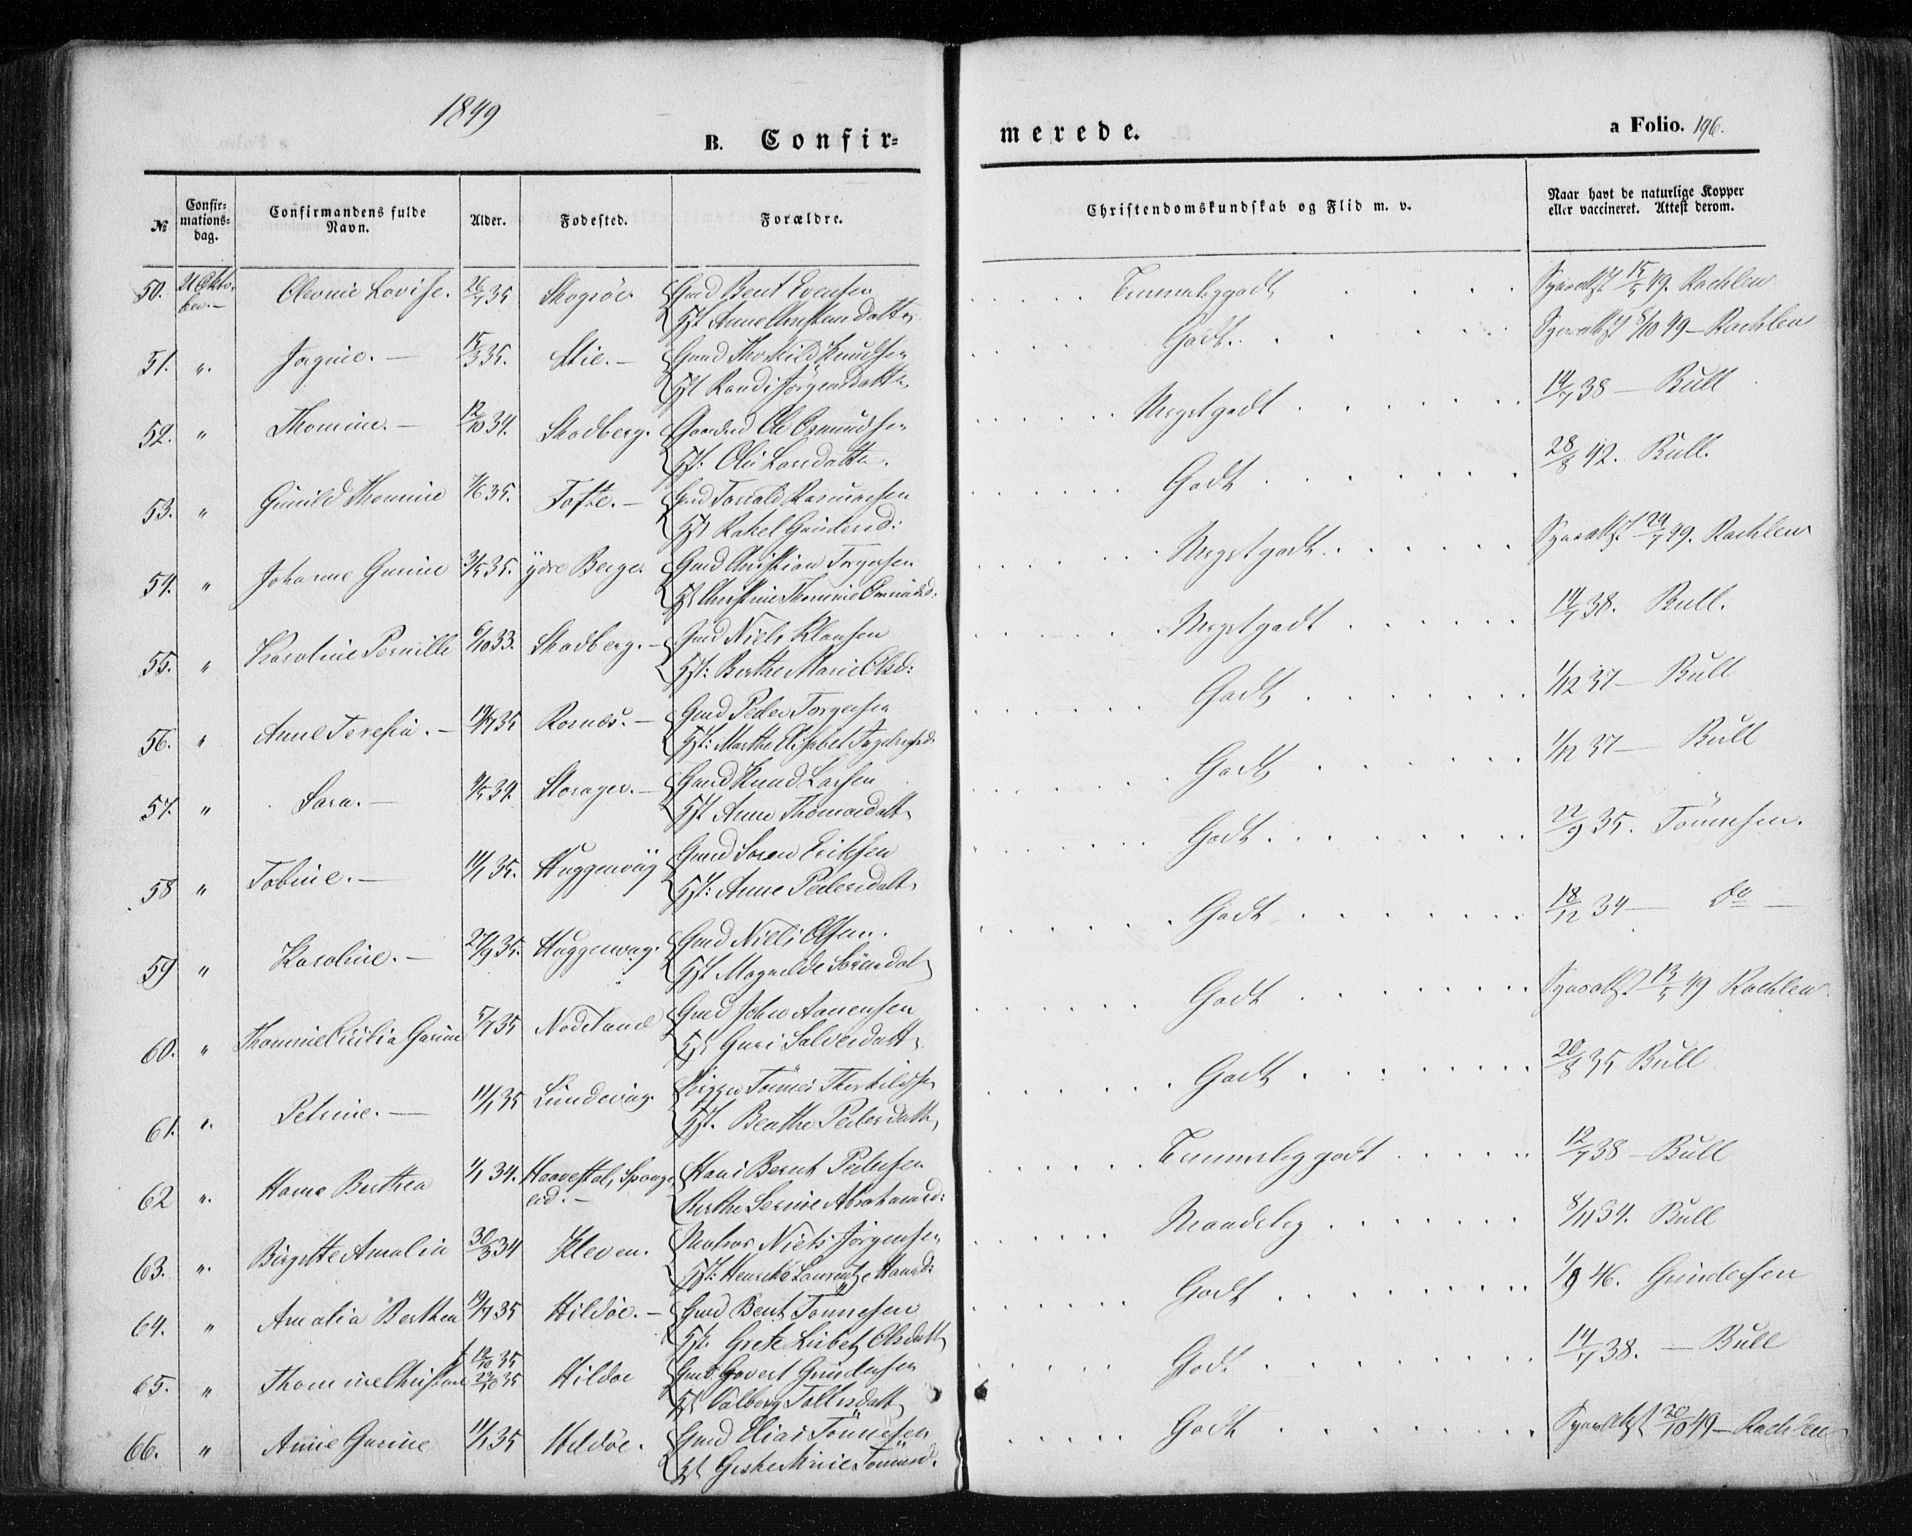 1849
B. Confir=
merede.
a Folio. 196.
№
Confir-
mations-
dag.
Confirmandens fulde
Navn.
Alder.
Fødested.
Forældre.
Christendomskundskab og Flid m. v.
Naar havt de naturlige Kopper
eller vaccineret. Attest derom.
50. Olevine Lovise. 26/7 35 Skogsøe Gmd Bent Evensen
Hst Anne Christensdatter
Temmeliggodt 15/5 49. Rachlew
51. " Jogine. — 15/3 35. Stie. — Gmd Thorkild Knudsen
Hst Randi Jørgensdatter
Godt. 8/10 49 — Rachlew
52. " Thomine. — 12/10 34. Skadberg. Ole Osmundsen
Hst. Olie Larsdatter.
Megetgodt 14/7 38 — Bull
53. " Gunild Thomine 7/6 35. Tofte. — Gmd Torvald Rasmussen
Hst Rakel Gundersd:
Godt 28/8 42. Bull.
54. " Johanne Gurine 3/5 35. ydre Berge Gmd Christian Torgersen
Hst Christine Thomine
Megetgodt 24/7 49. Rachlew
55. " Karoline Pernille 6/10 33. Skadberg. — Gmd Niels Klausen
Hst: Berthe Marie Olsd:
Megetgodt 14/7 38. Bull.
56. " Anne Teresia. — 19/7 35 Rosnæs. — Gmd Peder Torgersen
Hst: Marthe Elisabet
Godt 1/12 37 — Bull
57. " Sara. — 9/5 34. Storager. — Gmd Knud Larsen
Hst Anne Thomasdatt
Godt 1/12 37 — Bull
58 " Tobine. — 11/1 35. Huggenviig Gmd Søren Eriksen
Hst: Anne Pedersdatt
Godt 22/9 35. Tönnesen.
59 " Karoline. — 27/9 35. Huggenvig. Gmd Niels Olsen.
Hst Magnilde Sörensdat
Godt 18/12 34 — do —
60. " Thomine Cicilia Gurine 5/7 35 Nodeland Gmd John Aanensen
Hst Guri Salvesdatt
Godt 13/5 49 Rachlew
61. " Petrine. — 11/1 35 Lundevig. Tönnes Therkildsen
Hst. Berthe Pedersdatt
Godt 20/8 35 Bull
62 " Hanna Berthea 1/1 34. Haavestøl, Spange-
eid. — Hans Bernt Pedersen
Berthe Serine Abrahamsd:
Temmeliggodt 12/7 38 — Bull
63. " Birgitte Amalia 30/3 34 Kleven. Matros Niels Jörgensen
Hst: Henrikke Laurentze Hansd:
Maadelig 8/11 34. Bull
64. " Amalia Berthea 19/7 35 Hildøe. — Gmd Bent Tönnesen
Hst. Grete Lisbet Olsdatt
Godt 1/9 46. Gundersen
65. " Thomine Christine 12/10 35
22/10 35 Hildøe Gmd Govert Gundersen
Hst Valborg Tollesdatt
Godt 14/7 38. — Bull
66. " Anne Gurine 11/1 35 Hildøe. Gmd Elias Tönnesen
Hst Geske Marie Tönnesd.
Godt 20/10 49 — Rachlew